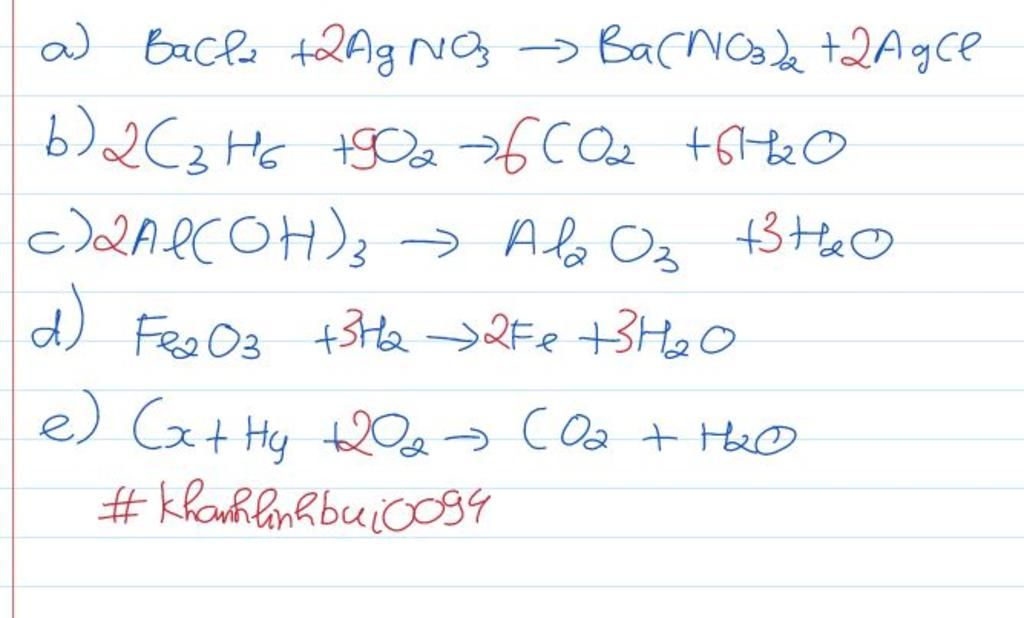 a) BaCl₂ +2AgNO₃ → Ba(NO₃)₂ +2AgCl
b) 2C₃H₆ +9O₂ → 6CO₂ +6H₂O
c) 2Al(OH)₃ → Al₂O₃ +3H₂O
d) Fe₂O₃ +3H₂ → 2Fe +3H₂O
e) Cx + Hy +2O₂ → CO₂ + H₂O
#khanhlinhbui0094